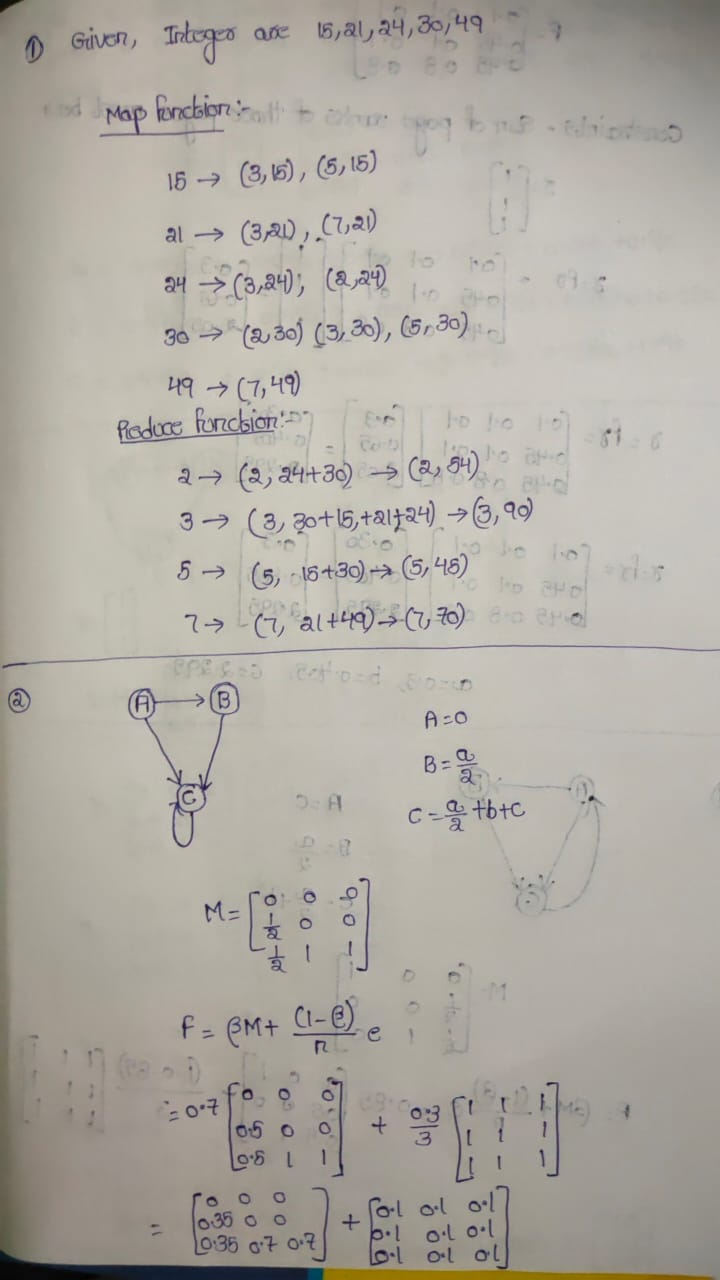 ① Given, Integer are 15,21,24,30,49
Map function:-
15 → (3,15), (5,15)
21 → (3,21), (7,21)
24 → (3,24), (2,24)
30 → (2,30) (3,30), (5,30)
49 → (7,49)
Reduce function:-
2 → (2, 24+30) → (2,54)
3 → (3, 30+15,+21+24) → (3,90)
5 → (5, 15+30) → (5,45)
7 → (7, 21+49) → (7,70)
②
A B
C
A=0
B=a/2
C=a/2+b+c
M= [0 0 0
1/2 0 0
1/2 1 1]
f = βM + (1-β)/n e
= 0.7 [0 0 0
0.5 0 0
0.5 1 1] + 0.3/3 [1 1 1
1 1 1
1 1 1]
= [0 0 0
0.35 0 0
0.35 0.7 0.7] + [0.1 0.1 0.1
0.1 0.1 0.1
0.1 0.1 0.1]